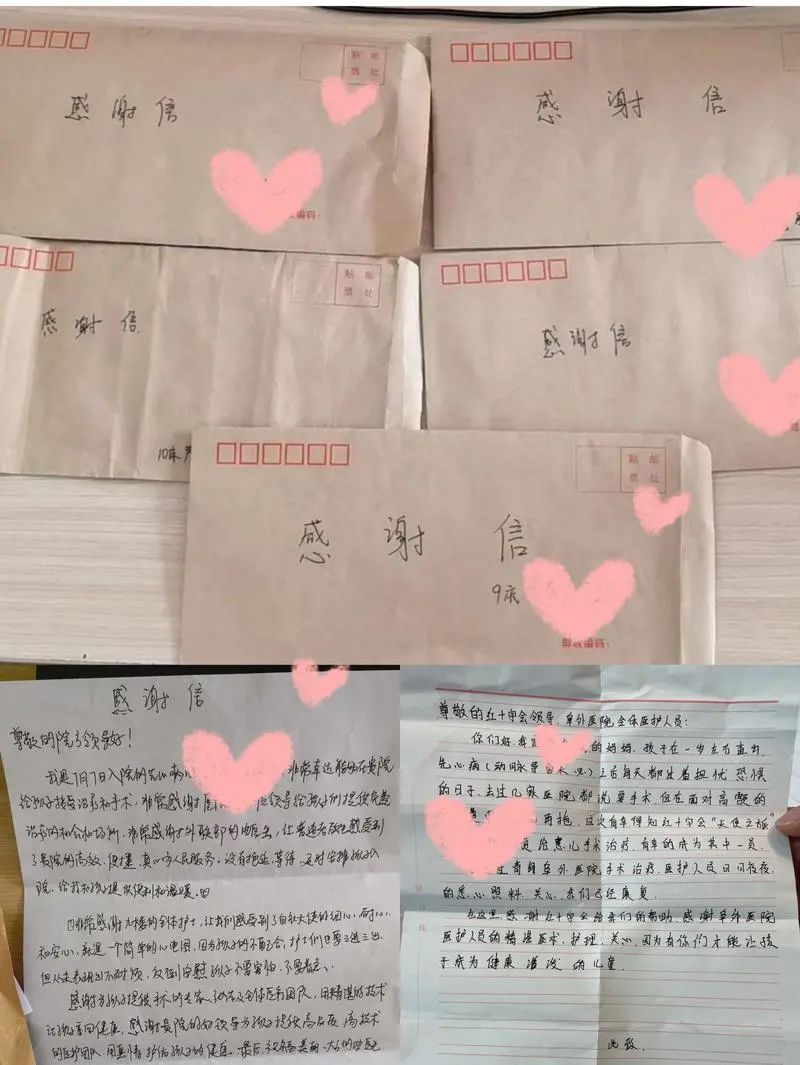 贴 邮
票 处
感 谢 信
编码:
感 谢 信
贴 邮
票 处
感 谢 信
10床
贴 邮
票 处
感 谢 信
贴 邮
票 处
感 谢 信
9床
邮政编码:
感 谢 信
尊敬的院领导好!
我是7月7日入院的 非常幸运 在贵院
给孩子接受治疗和手术,非常感谢 领导给孩子们提供免费
治疗的机会和场所.非常感谢外联部的 让普通百姓感受到
了贵院的高效、 真心为人民服务,没有拖延等待,及时安排孩子入
院,给我和孩子提供便利和温暖.
非常感谢九楼的全体护士,让我们感受到了白衣天使的细心、耐心、
和安心,就是一个简单的心电图,因为孩子的不配合,护士们 要三进三出,
但从未表现出不耐烦,反倒安慰孩子不要害怕.不要着急.
感谢为孩子提供手术的专家、 及全体医务团队,用精湛的技术
让孩子重回健康,感谢贵院的好领导为孩子提供 高技术
的医护团队,用真情护佑孩子的健康.最后,祝福美丽、大方的
尊敬的红十字会领导,阜外医院全体医护人员:
你们好,我 的妈妈,孩子在一岁左右查出
先心病(动脉导管未 )之后每天都过着担忧恐慌
的日子,去过几家医院都说要手术,但在面对高额的
再拖,这次有幸得知红十字会“天使之旅”
给患儿手术治疗,有幸的成为其中一员,
阜外医院手术治疗,医护人员日日夜夜
的悉心照料,关心,我们已经康复.
在这里,感谢红十字会给我们的帮助,感谢阜外医院
医护人员的精湛医术,护理,关心,因为有你们才能让孩
子成为健康活泼的儿童.
此致.